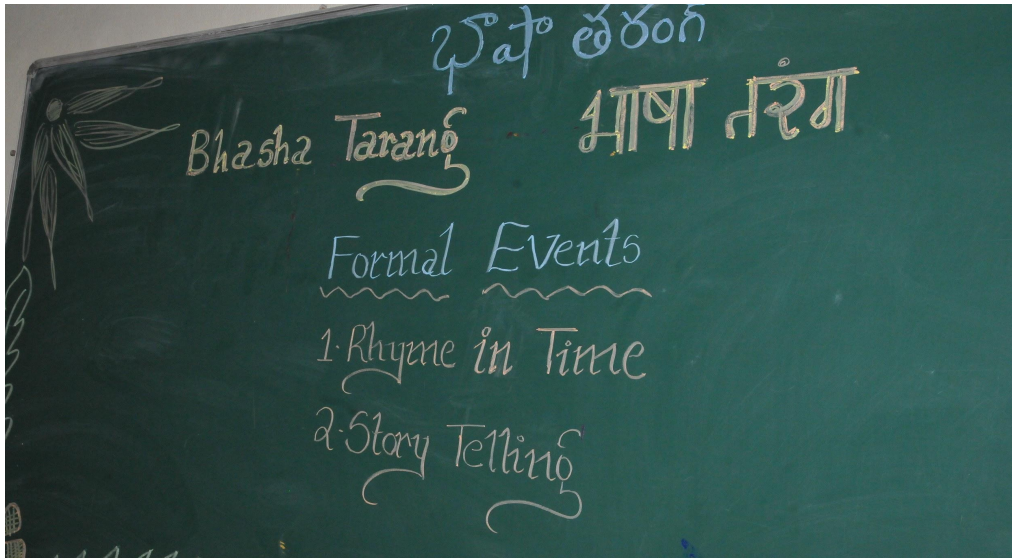 భాషా తరంగ్
Bhasha Tarang भाषा तरंग
Formal Events
1. Rhyme in Time
2. Story Telling